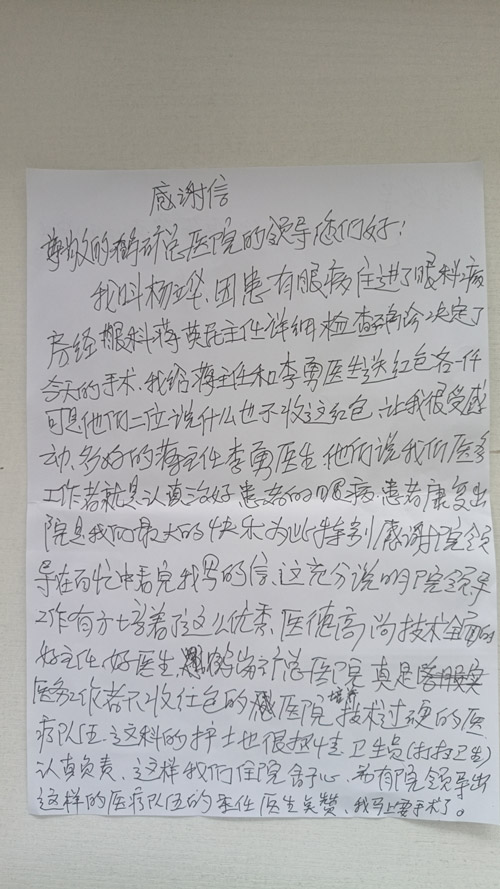 感谢信
尊敬的鹤矿总医院的领导您们好!
我叫杨亚华、因患有眼病住进了眼科病
房经眼科蒋英民主任详细检查确诊决定了
今天的手术、我给蒋主任和李勇医生送红包各一件
可是他们二位说什么也不收这红包、让我很受感
动、多好的蒋主任李勇医生、他们说我们医务
工作者就是认真治好患者的眼病、患者康复出
院是我们最大的快乐为此特别感谢院领
导在百忙中看完我写的信、这充分说明院领导
工作有方培养了这么优秀、医德高尚技术全面的
好主任、好医生、总医院真是
医务工作者不收红包的医院培养技术过硬的医
疗队伍、这科的护士也很热情卫生员(打扫卫生)
认真负责、这样我们住院舒心、为有院领导出
这样的医疗队伍的主任医生点赞、我马上要手术了。